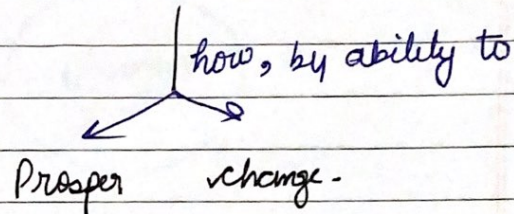 how, by ability to
Prosper change.